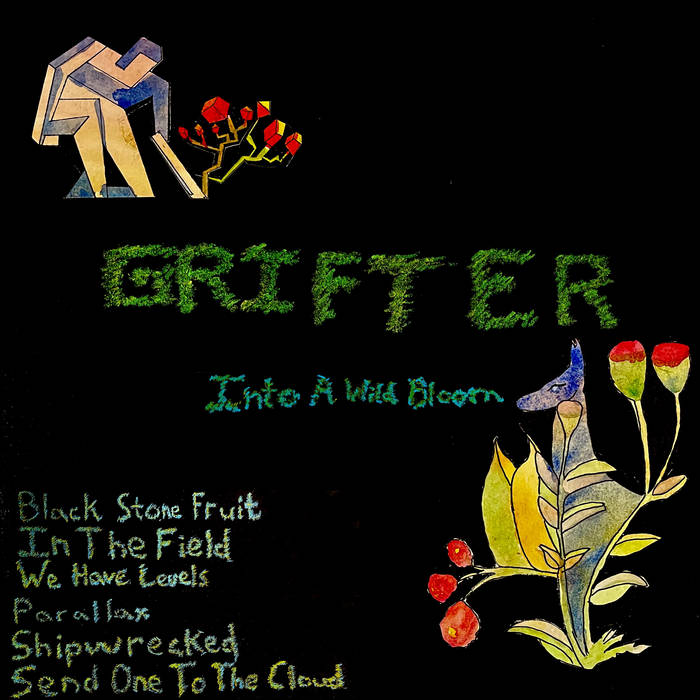 GRIFTER
Into A Wild Bloom
Black Stone Fruit
In The Field
We Have Levels
Parallax
Shipwrecked
Send One To The Cloud